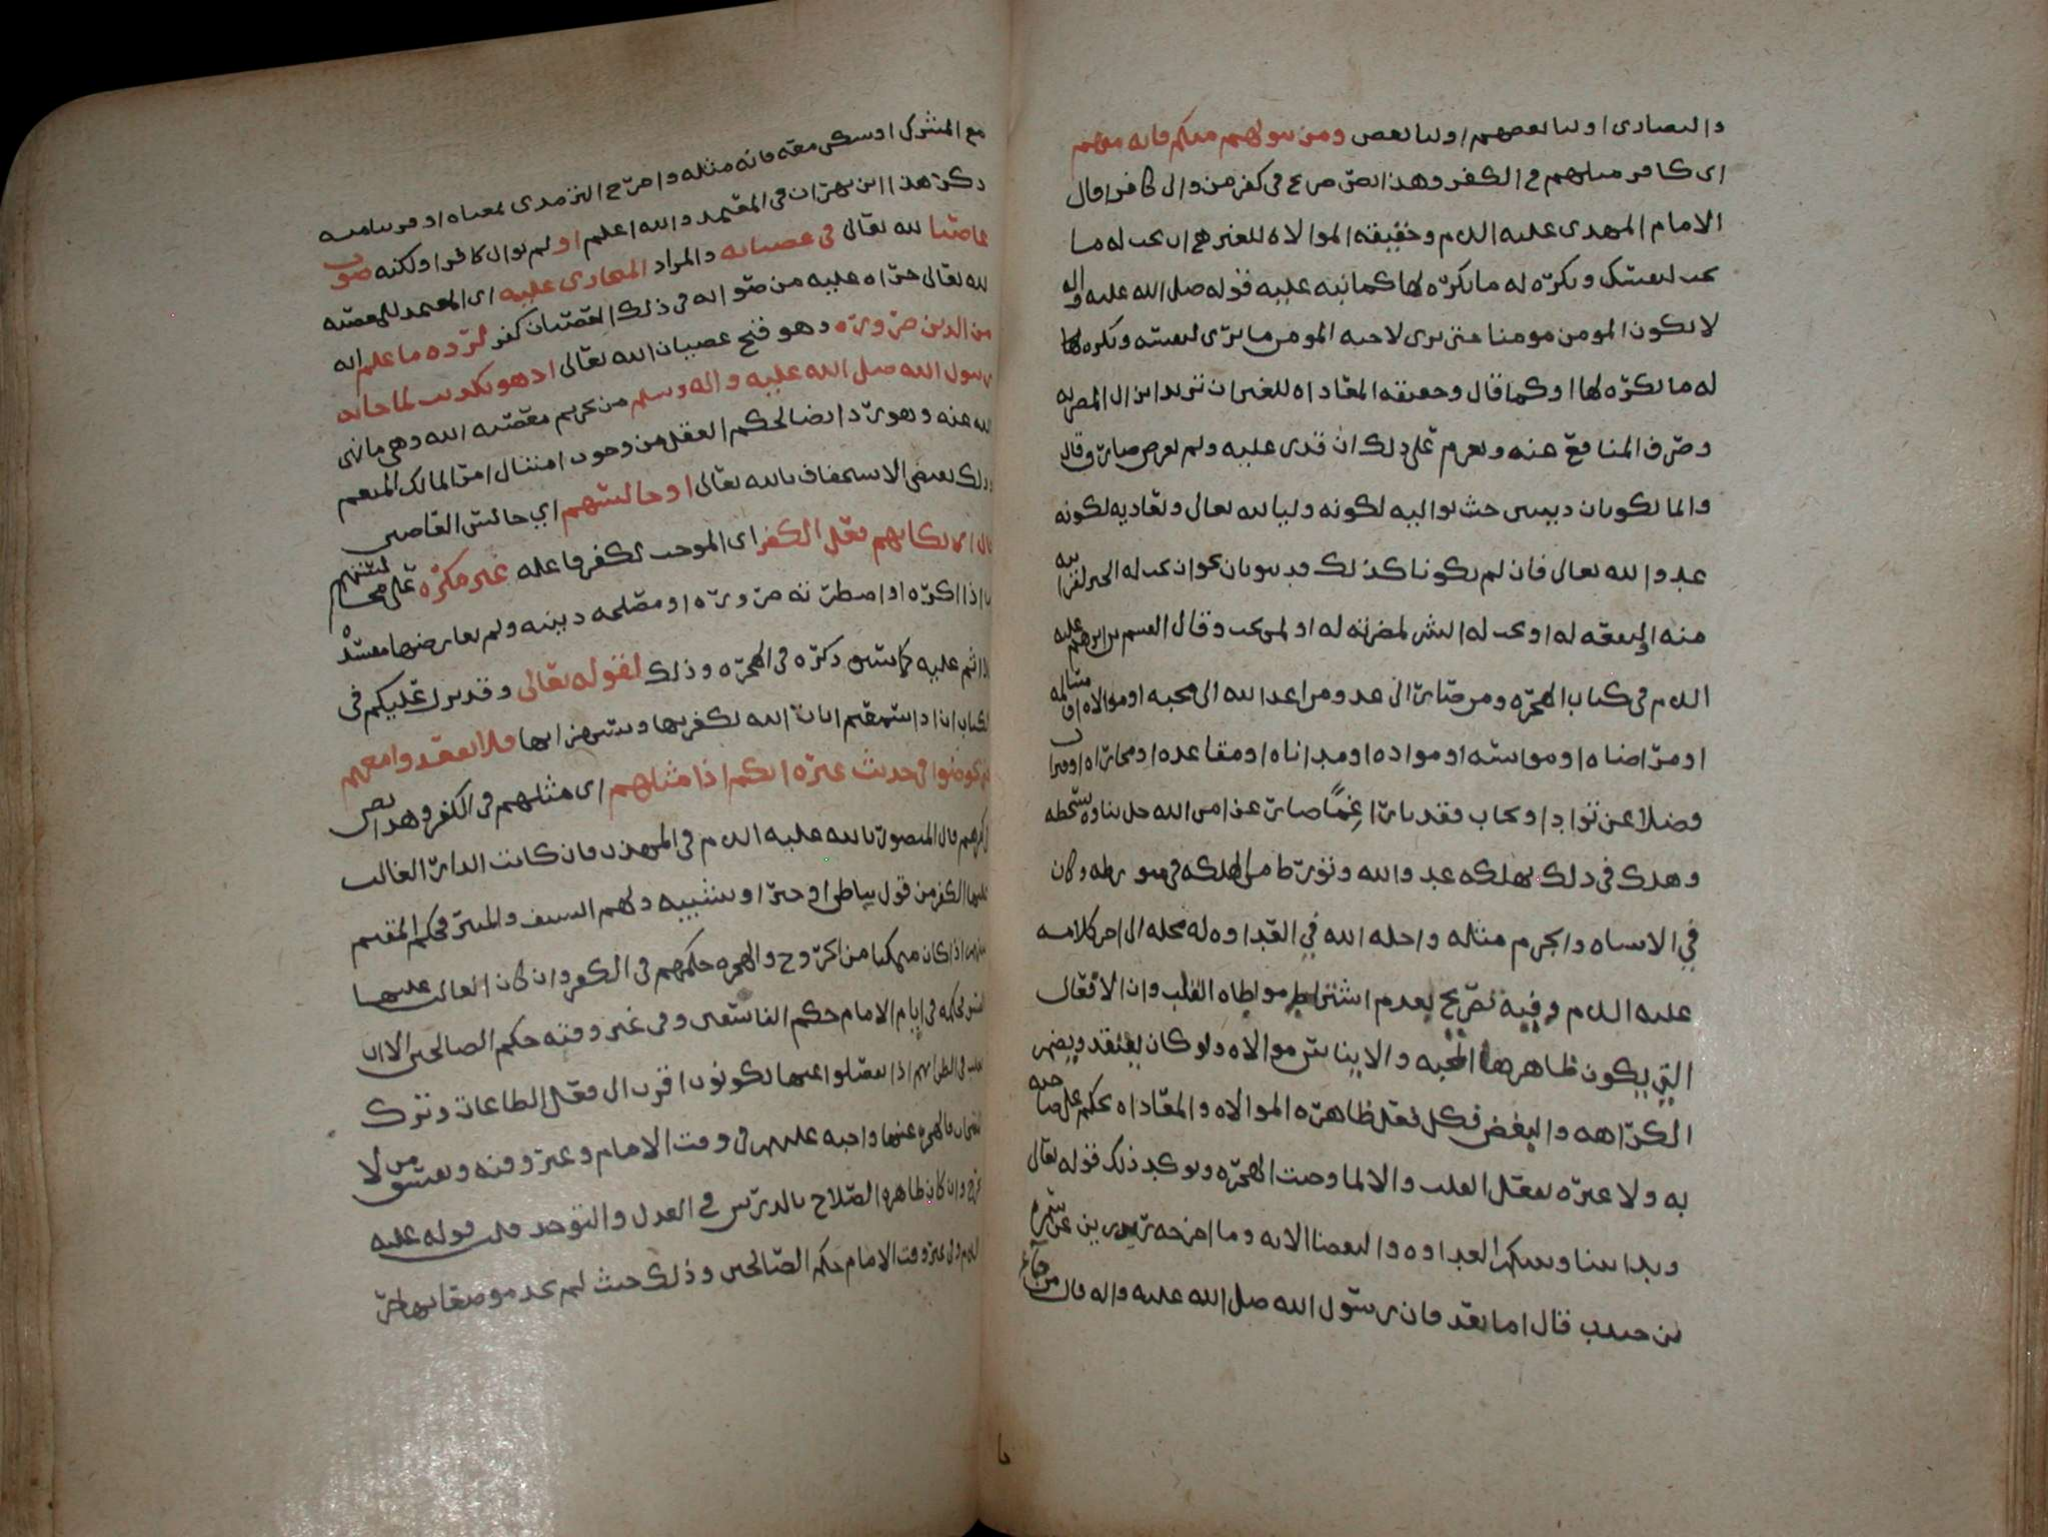 والنصارى اوليا بعضهم اوليا بعض ومن يتولهم منكم فانه منهم
اى كافر مثلهم فى الكفر وهذا نص صريح فى كفر من والى كافرا قال
الامام المهدى عليه السلام وحقيقه الموالاه للغير هى ان تحب له ما
تحب لنفسك وتكره له ما تكره لها كما نبه عليه قوله صلى الله عليه واله
لا يكون المومن مومنا حتى يرى لاخيه المومن ما يرى لنفسه ويكره لها
له ما يكره لها او كما قال وحقيقه المعاداه للغير ان تريد انزال المضره به
وصرف المنافع عنه وتعزم على ذلك ان قدرت عليه ولم يعرض صارف قال
وانما تكونان دينيتين حيث تواليه لكونه وليا لله تعالى وتعاديه لكونه
عدوا لله تعالى فان لم تكونا كذلك فدنيويتان نحو ان تحب له الخير لقرابته
منه او لنفعه له او تحب له الشر لمضرته له او لمن يحب وقال القسم بن ابرهيم عليه
السلام فى كتاب الهجره ومن صار الى عدو من اعدا الله الى محبه او موالاه او مسالمه
او مراضاه او موانسه او مواده او مداناه او مقاعده او مجاوره او اقتراب
فضلا عن تواد او تحاب فقد باء رغما صار عن امر الله جل ثناوه بسخطه
وهلك فى ذلك بهلكه عدو الله وتورط من الهلكه فى متورطه وكان
فى الاساه والجرم مثله واحله الله فى العداوه له محله الى اخر كلامه
عليه السلام وفيه تصريح بعدم اشتراط مواطاه القلب وان الافعال
التى يكون ظاهرها المحبه والايناس موالاه ولو كان يعتقد ويضمر
الكراهه والبغض فكل فعل ظاهره الموالاه والمعاداه يحكم على صاحبه
به ولا عبره بفعل القلب والا لما وجبت الهجره ويوكد ذلك قوله تعالى
وبدا بيننا وبينكم العداوه والبغضا الايه وما اخرجه رزين عن سمره
بن جندب قال اما بعد فان رسول الله صلى الله عليه واله قال من جامع
مع المشرك او سكن معه فانه مثله واخرج الترمذى معناه او قريبا منه
ذكر هذا ابن بهران فى المعتمد والله اعلم او لم يوال كافرا ولكنه صوب
عاصيا لله تعالى فى عصيانه والمراد المتجارى عليه اى المعتمد للمعصيه
لله تعالى جراه عليه من صوابه فى ذلك العصيان كفر لرده ما علم انه
من الدين ضروره وهو قبح عصيان الله تعالى اذ هو تكذيب لما جا به
رسول الله صلى الله عليه واله وسلم من تحريم معصيه الله وهى ما نهى
الله عنه وهو رد ايضا لحكم العقل من وجوب امتثال امر المالك المنعم
وذلك يقتضى الاستخفاف بالله تعالى او جالسهم اي جالس العاصين
حال ارتكابهم فعل الكفر اى الموجب لكفر فاعله غير مكره على مجالستهم
اذا اكره او اضطرته ضروره او مصلحه دينيه ولم يعارضها مفسده
فلا اثم عليه كما سبق ذكره فى الهجره وذلك لقوله تعالى وقد نزل عليكم فى
الكتاب ان اذا سمعتم ايات الله يكفر بها ويستهزا بها فلا تقعدوا معهم
حتى يخوضوا فى حديث غيره انكم اذا مثلهم اى مثلهم فى الكفر وهذا نص
قال المنصور بالله عليه السلام فى المهذب فان كانت الدار الغالب
عليها الكفر من قول بباطن او جبر او تشبيه ولهم السيف والمنبر فحكم المقيم
اذا كان متمكنا من الخروج والهجره حكمهم فى الكفر وان كان الغالب عليها
الفسق فحكمه فى ايام الامام حكم الفاسقين وفى غير وقته حكم الصالحين الا ان
يغلب فى الظن انهم اذا انفصلوا عنها يكونون اقرب الى فعل الطاعات وترك
فالهجره عنها واجبه عليهم فى وقت الامام وغير وقته ويفسق من لا
وان كان ظاهره الصلاح بالدرس فى العدل والتوحيد قلت قوله عليه
السلام وفى غير وقت الامام حكم الصالحين وذلك حيث لم يجد موضعا يهاجر